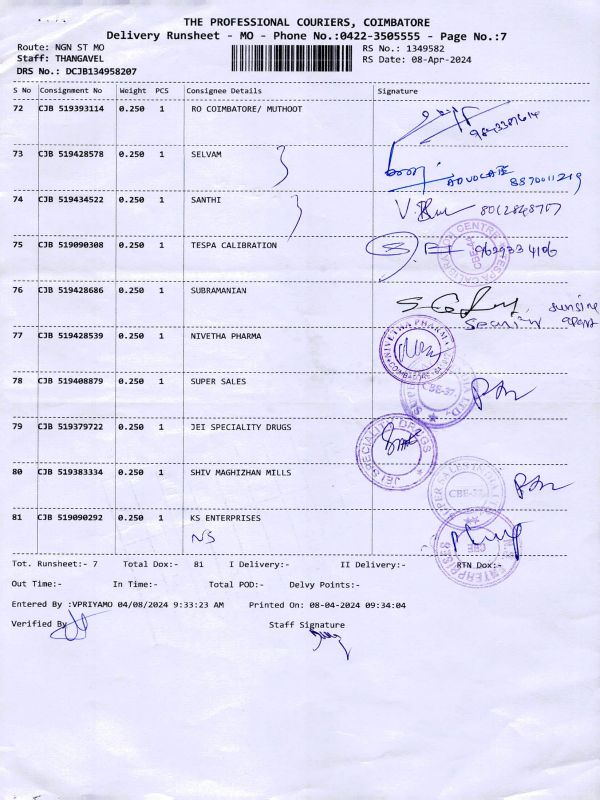 THE PROFESSIONAL COURIERS, COIMBATORE
Delivery Runsheet - MO - Phone No.:0422-3505555 - Page No.:7
Route: NGN ST MO
RS No.: 1349582
Staff: THANGAVEL
RS Date: 08-Apr-2024
DRS No.: DCJB134958207
S No Consignment No Weight PCS Consignee Details Signature
72 CJB 519393114 0.250 1 RO COIMBATORE/ MUTHOOT
73 CJB 519428578 0.250 1 SELVAM
ADVOCATE 8870011219
74 CJB 519434522 0.250 1 SANTHI
8012848707
75 CJB 519090308 0.250 1 TESPA CALIBRATION
9629334106
76 CJB 519428686 0.250 1 SUBRAMANIAN
Security
77 CJB 519428539 0.250 1 NIVETHA PHARMA
NIVETHA PHARMA
78 CJB 519408879 0.250 1 SUPER SALES
CBE-37
79 CJB 519379722 0.250 1 JEI SPECIALITY DRUGS
JEI SPECIALITY DRUGS
80 CJB 519383334 0.250 1 SHIV MAGHIZHAN MILLS
81 CJB 519090292 0.250 1 KS ENTERPRISES
NS
Tot. Runsheet:- 7 Total Dox:- 81 I Delivery:- II Delivery:- RTN Dox:-
Out Time:- In Time:- Total POD:- Delvy Points:-
Entered By :VPRIYAMO 04/08/2024 9:33:23 AM Printed On: 08-04-2024 09:34:04
Verified By Staff Signature